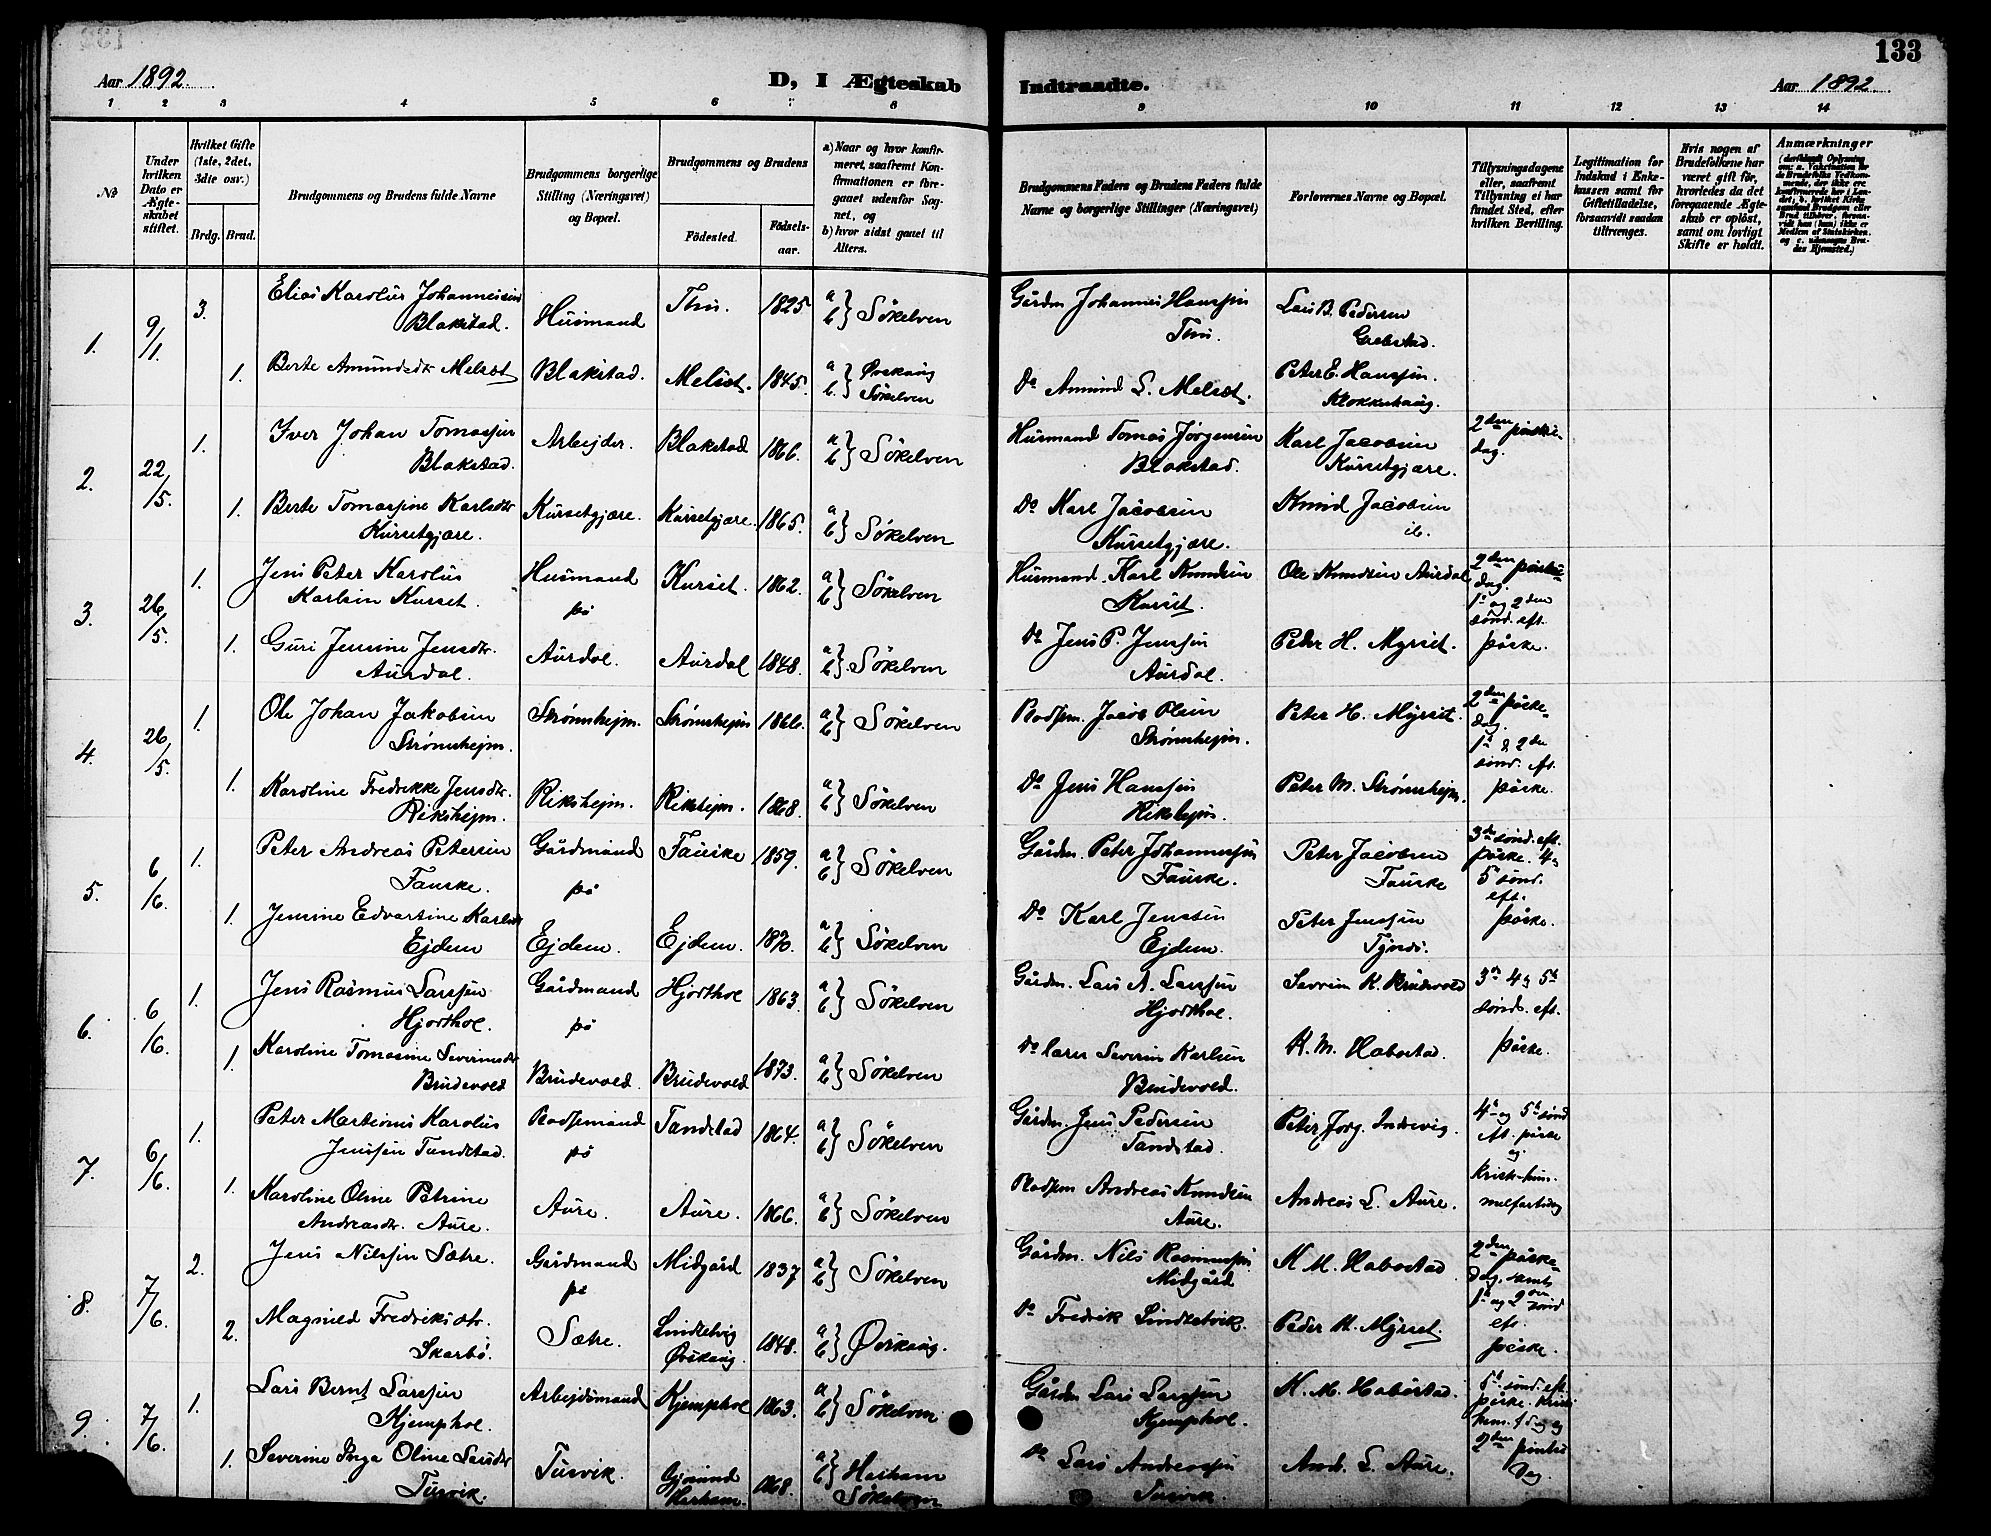 133
Aar 1892.
D, I Ægteskab
Indtraadte.
Aar 1892
1 2 3 4 5 6 7 8 9 10 11 12 13 14
№
Under hvilken Dato er Ægteskabet stiftet.
Hvilket Gifte (1ste, 2det, 3die osv.)
Brdg. Brud.
Brudgommens og Brudens fulde Navne
Brudgommens borgerlige Stilling (Næringsvei) og Bopæl.
Brudgommens og Brudens
Fødested.
Fødselsaar.
a) Naar og hvor konfirmeret, saafremt Konfirmationen er foregaaet udenfor Sognet, og
b) hvor sidst gaaet til Alters.
Brudgommens Faders og Brudens Faders fulde Navne og borgerlige Stillinger (Næringsvei)
Forlovernes Navne og Bopæl.
Tillysningsdagene eller, saafremt Tillysning ei har fundet Sted, efter hvilken Bevilling.
Legitimation for Indskud i Enkekassen samt for Giftetilladelse, forsaavidt saadan tiltrænges.
Hvis nogen af Brudefolkene har været gift før, hvorledes da det foregaaende Ægteskab er opløst, samt om lovligt Skifte er holdt.
Anmærkninger
1. 9/1. 3. Elias Karolus Johannessen Blakstad. Husmand Thu. 1825 a b } Søkelven Gårdm. Johannes Hanssen Thu. Lars B. Pedersen
1. Berte Amundsdtr Melset Blakstad. Melset. 1845. a b } Ørskoug Søkelven Do Amund L. Melset. Peter E. Hanssen. Klokkerhaug.
2. 22/5. 1. Iver Johan Tomassen Blakstad. Arbejder. Blakstad 1866. a b } Søkelven Husmand Tomas Jørgensen Blakstad. Karl Jacobsen Kursetgjære. 2den påskedag.
1. Berte Tomassine Karlsdtr Kursetgjære. Kursetgjære. Kursetgjære. 1865. a b } Søkelven Do Karl Jacobsen Kursetgjære. Knud Jacobsen ib.
3. 26/5. 1. Jens Peter Karolus Karlsen Kurset. Husmand på Kurset. 1862. a b } Søkelven Husmand. Karl Knudsen Kurset. Ole Knudsen Aurdal 2den påskedag. 1ste og 2den
1. Guri Jensine Jensdtr. Aurdal. Aurdal. Aurdal 1848. a b } Søkelven Do Jens P. Jenssen Aurdal. Peder H. Myrset. sønd. eft. påske.
4. 26/5. 1. Ole Johan Jakobsen Strømshejm. Strømshejm. Strømshejm 1866. a b } Søkelven Jacob Olsen Strømshejm. Peter H. Myrset. 2den påskedag. 1ste & 2den
1. Karoline Fredrikke Jensdtr. Rikshejm. Rikshejm. Rikshejm. 1868. a b } Søkelven Do Jens Hanssen Rikshejm. Peter M. Strømshejm. sønd. eft. påske.
5. 6/6. 1. Peter Andreas Petersen Fauske. Gårdmand på Fauske 1859. a b } Søkelven Gårdm. Peter Johannessen Fauske. Peter Jacobsen Fauske 3de sønd. eft. påske. 4 og 5
1. Jensine Edvartine Karlsdtr Ejdem Ejdem. Ejdem. 1870. a b } Søkelven Do Karl Jenssen Ejdem. Peter Jenssen Tynes. sønd. eft. påske.
6. 6/6. 1. Jens Rasmus Larssen Hjorthol. Gårdmand på Hjorthol 1863. a b } Søkelven Gårdm. Lars A. Larssen Hjorthol. Severin K. Brudevold 3de 4 og 5te sønd. eft.
1. Karoline Tomasine Severinsdtr Brudevold Brudevold. Brudevold 1873. a b } Søkelven Do Severin Karlsen Brudevold. K. M. Habostad. påske.
7. 6/6. 1. Peter Martinus Karolus Jenssen Tandstad. på Tandstad 1864. a b } Søkelven Gårdm. Jens Pedersen Tandstad. Peter Jørg. Indrevig. 4de og 5te sønd eft. påske og
1. Karoline Oline Petrine Andreasdtr. Aure. Aure. Aure. 1866. a b } Søkelven Andreas Knudsen Aure. Andreas L. Aure. Krist. himmelfartsdag
8. 7/6. 2. Jens Nilssen Sætre. Gårdmand på Midgård 1837 a b } Søkelven Gårdm. Nils Rasmussen Midgård K. M. Habostad 2den påskedag, samt 1ste og 2den sønd
2. Magnild Fredriksdtr. Skarbø. Sætre. Lindletvig Ørskoug. 1848. a b } Ørskoug. Do Fredrik Lindletvik. Peder H. Myrset. eft. påske.
9. 7/6. 1. Lars Bernt Larssen Kjemphol. Arbejdsmand Kjemphol 1863. a b } Søkelven Gårdm Lars Larssen Kjemphol. K. M. Habostad. 5te sønd. eft. påske. Kristi him. f. dag og
1. Severine Inga Oline Larsdtr Tusvik. Tusvik. Harham. 1868. a b } Harham Søkelven Do Lars Andreassen Tusvik. And. L. Aure. 2den pintse Dag.